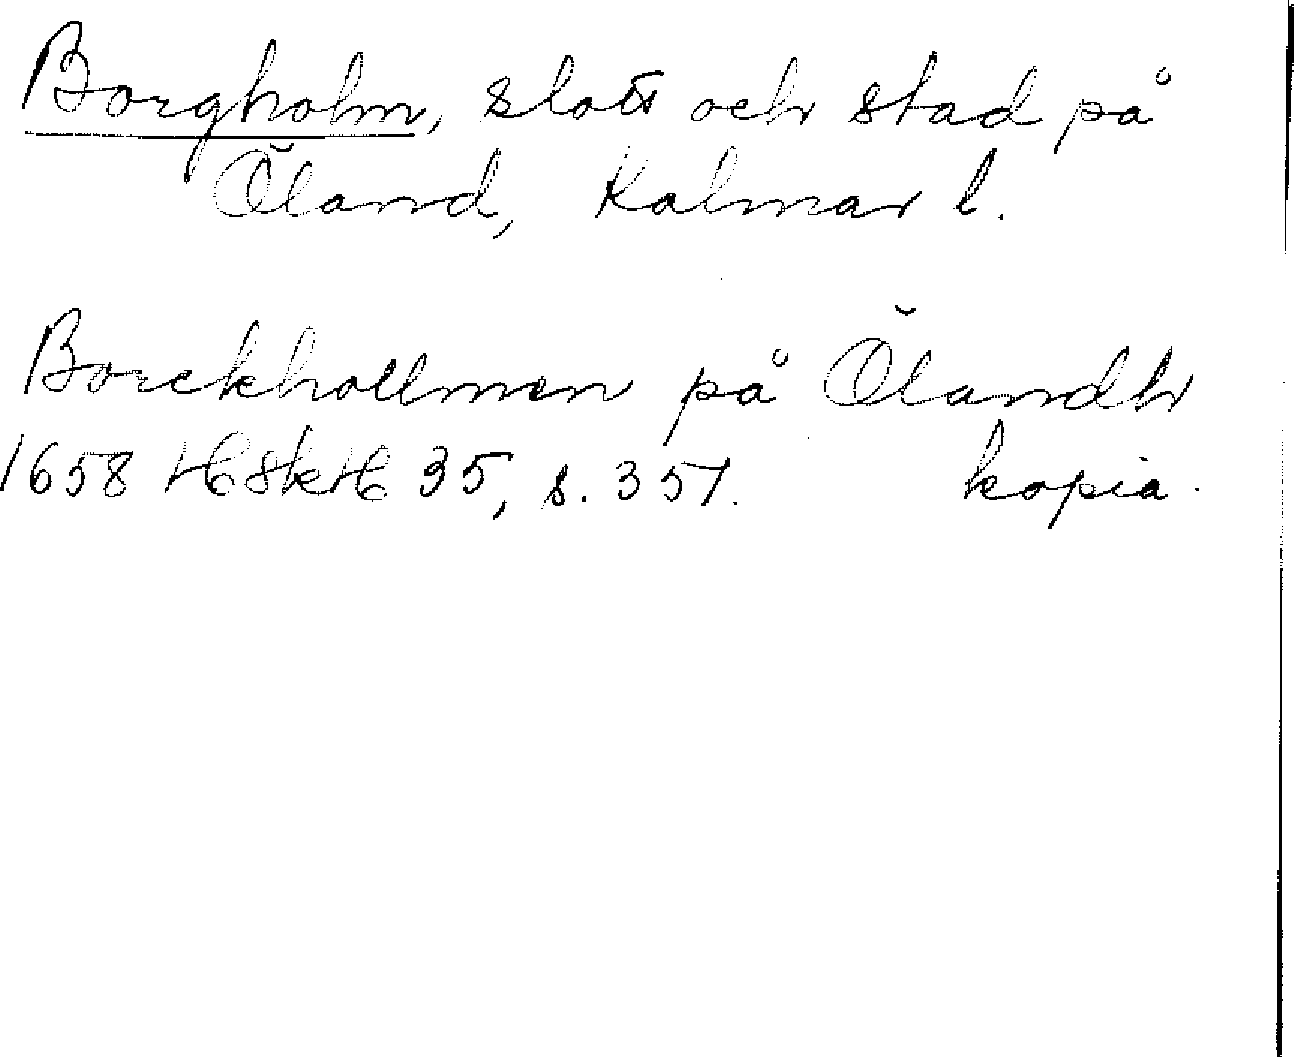 Borgholm, slott och stad på
Öland, Kalmar l.
Borckhollmen på Ölandh
1658 HSkH 35, s. 351. kopia.